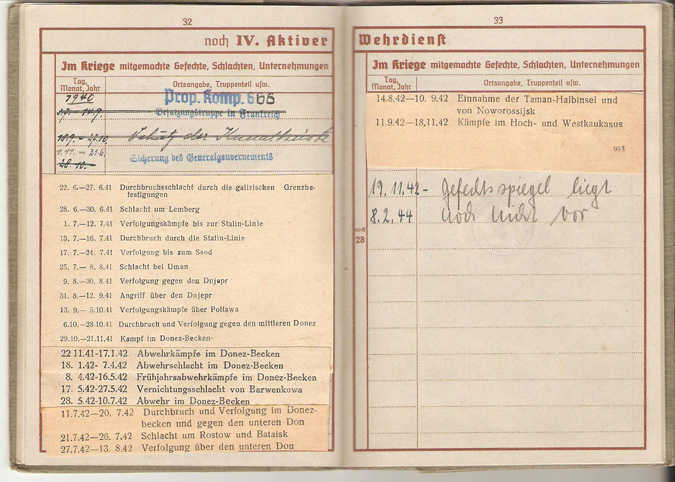 32
noch IV. Aktiver
Im Kriege mitgemachte Gefechte, Schlachten, Unternehmungen
Tag, Monat, Jahr
Ortsangabe, Truppenteil usw.
1940
Prop. Komp. 666
Besatzungstruppe in Frankreich
Schutz der Kanalküste
Sicherung des Generalgouvernements
28.10.
22. 6.—27. 6.41 Durchbruchsschlacht durch die galizischen Grenzbe-
festigungen
28. 6.—30. 6.41 Schlacht um Lemberg
1. 7.—12. 7.41 Verfolgungskämpfe bis zur Stalin-Linie
13. 7.—16. 7.41 Durchbruch durch die Stalin-Linie
17. 7.—24. 7.41 Verfolgung bis zum Ssod
25. 7.— 8. 8.41 Schlacht bei Uman
9. 8.—30. 8.41 Verfolgung gegen den Dnjepr
31. 8.—12. 9.41 Angriff über den Dnjepr
13. 9.— 5.10.41 Verfolgungskämpfe über Poltawa
6.10.—28.10.41 Durchbruch und Verfolgung gegen den mittleren Donez
29.10.—21.11.41 Kampf im Donez-Becken
22 11.41-17.1.42 Abwehrkämpfe im Donez-Becken
18. 1.42- 7.4.42 Abwehrschlacht im Donez-Becken
8. 4.42-16.5.42 Frühjahrsabwehrkämpfe im Donez-Becken
17. 5.42-27.5.42 Vernichtungsschlacht von Barwenkowa
28. 5.42-10.7.42 Abwehr im Donez-Becken
11.7.42—20. 7.42 Durchbruch und Verfolgung im Donez-
becken und gegen den unteren Don
21.7.42—26. 7.42 Schlacht um Rostow und Bataisk
27.7.42—13. 8.42 Verfolgung über den unteren Don
33
Wehrdienst
Im Kriege mitgemachte Gefechte, Schlachten, Unternehmungen
Tag, Monat, Jahr
Ortsangabe, Truppenteil usw.
14.8.42—10. 9.42 Einnahme der Taman-Halbinsel und
von Noworossijsk
11.9.42—18.11.42 Kämpfe im Hoch- und Westkaukasus
953
19.11.42- Gefechtsspiegel liegt
8.2.44 noch nicht vor
noch
28